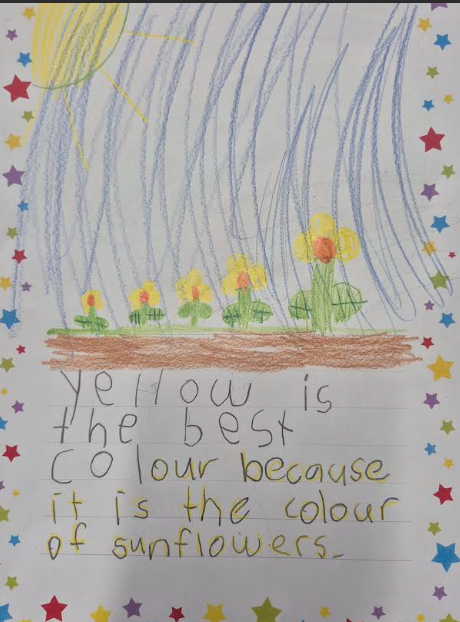 Yellow is
the best
colour because
it is the colour
of sunflowers.